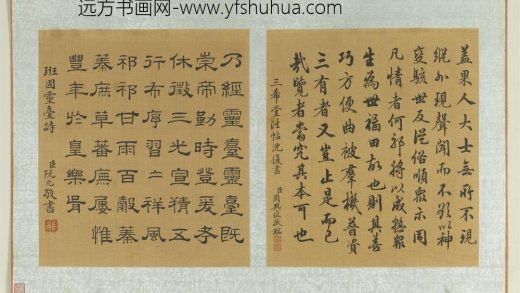 远方书画网-www.yfshuhua.com
盖果人大士無所不現
縱外現聲聞而不歎以神
變駭世及從俗順眾示同
凡情者何邪將以成熟眾
生為世福田故也則其善
巧方便曲被羣機普資
三有者又豈止是而已
哉覽者當究其本可也
三希堂法帖沈復書
臣周興岱敬臨
乃經靈臺靈臺既
崇帝勤時登爰考
休徵三光宣精五
行布序習習祥風
祁祁甘雨百穀蓁
蓁庶草蕃廡屢惟
豐年於皇樂胥
班固靈臺詩
臣阮元敬書